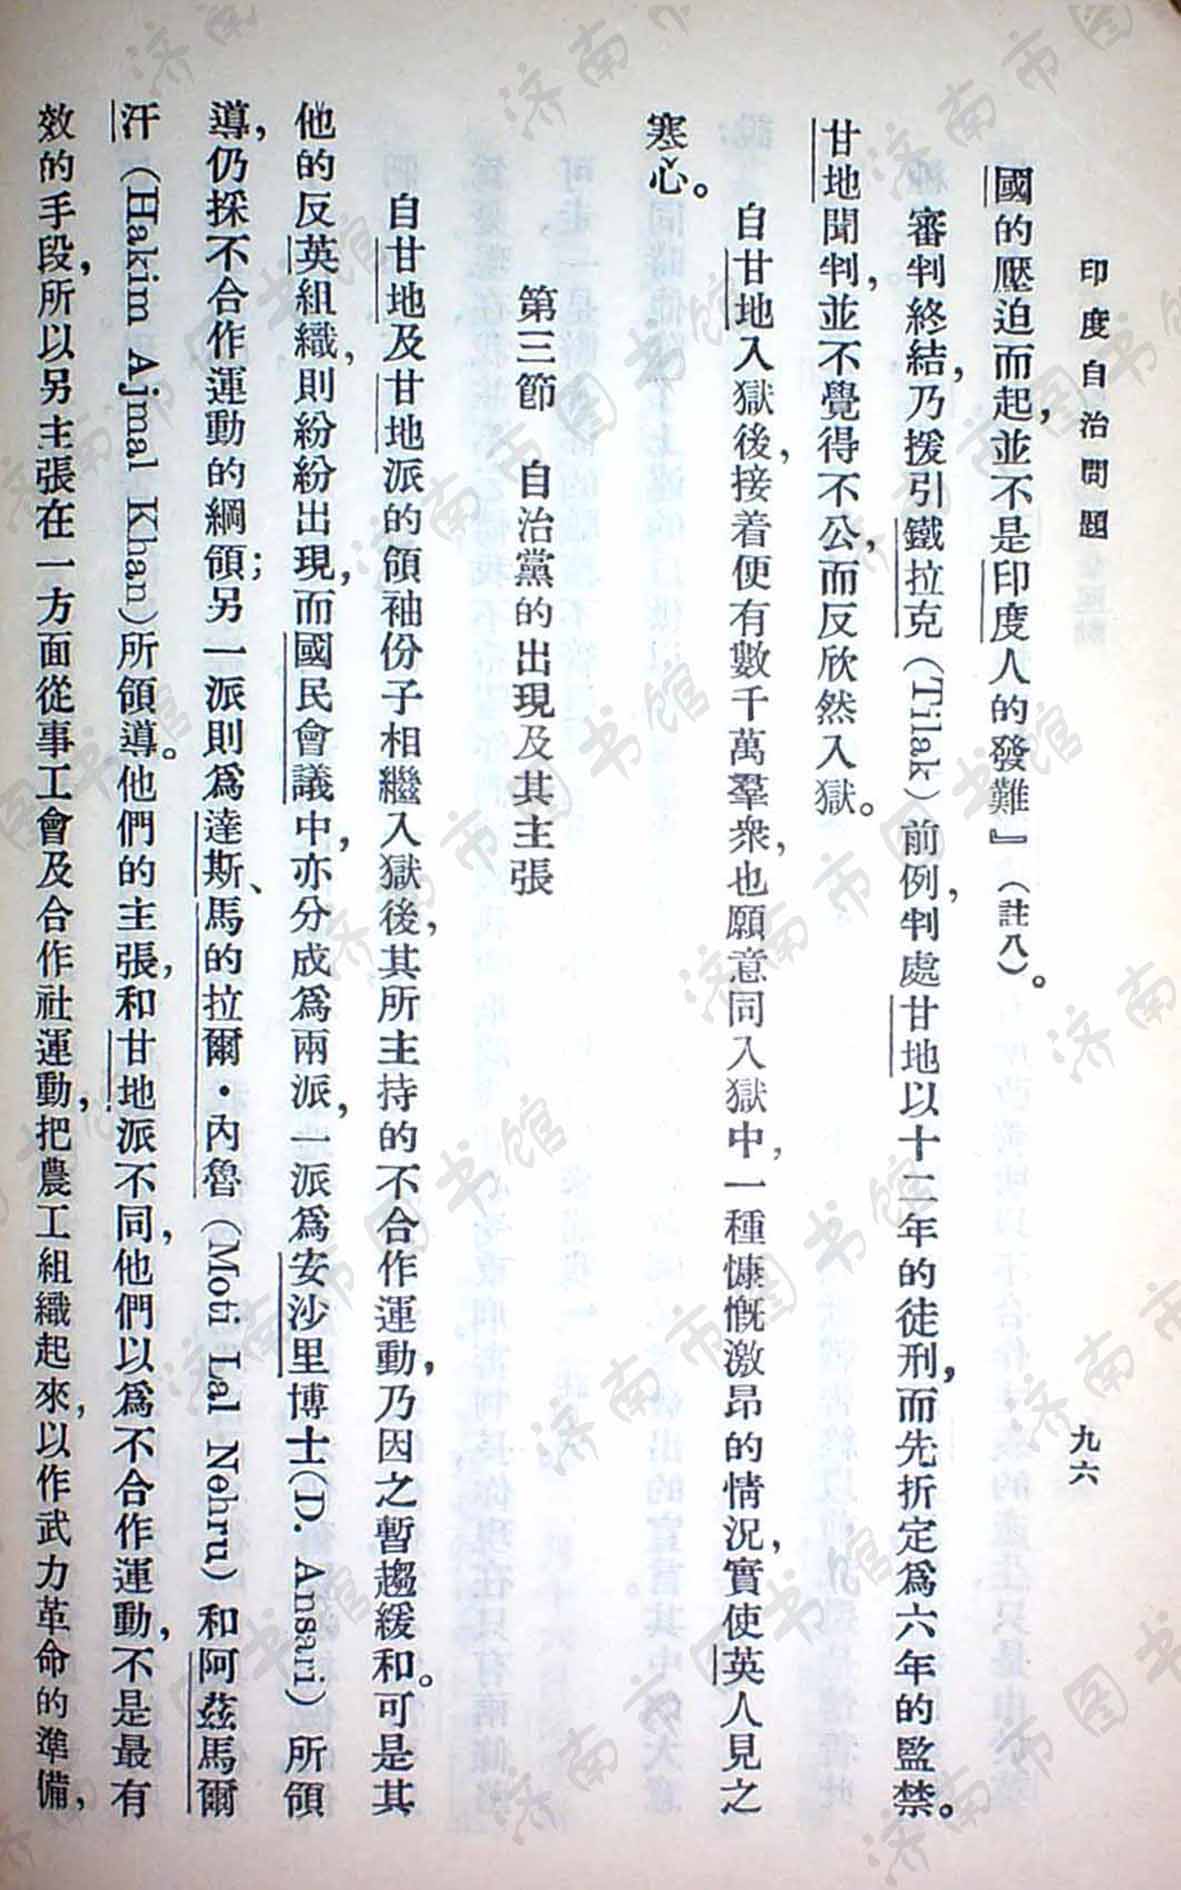 印度自治問題
九六
國的壓迫而起，並不是印度人的發難』（註八）。
審判終結，乃援引鐵拉克（Tilak）前例，判處甘地以十二年的徒刑，而先折定爲六年的監禁。
甘地聞判，並不覺得不公，而反欣然入獄。
自甘地入獄後，接着便有數千萬羣衆，也願意同入獄中，一種慷慨激昂的情況，實使英人見之
寒心。
第三節　自治黨的出現及其主張
自甘地及甘地派的領袖份子相繼入獄後，其所主持的不合作運動，乃因之暫趨緩和。可是其
他的反英組織，則紛紛出現，而國民會議中，亦分成爲兩派，一派爲安沙里博士（D. Ansari）所領
導，仍採不合作運動的綱領；另一派則爲達斯、馬的拉爾・內魯（Moti Lal Nehru）和阿茲馬爾
汗（Hakim Ajmal Khan）所領導。他們的主張，和甘地派不同，他們以爲不合作運動，不是最有
效的手段，所以另主張在一方面從事工會及合作社運動，把農工組織起來，以作武力革命的準備，
济南市图书馆